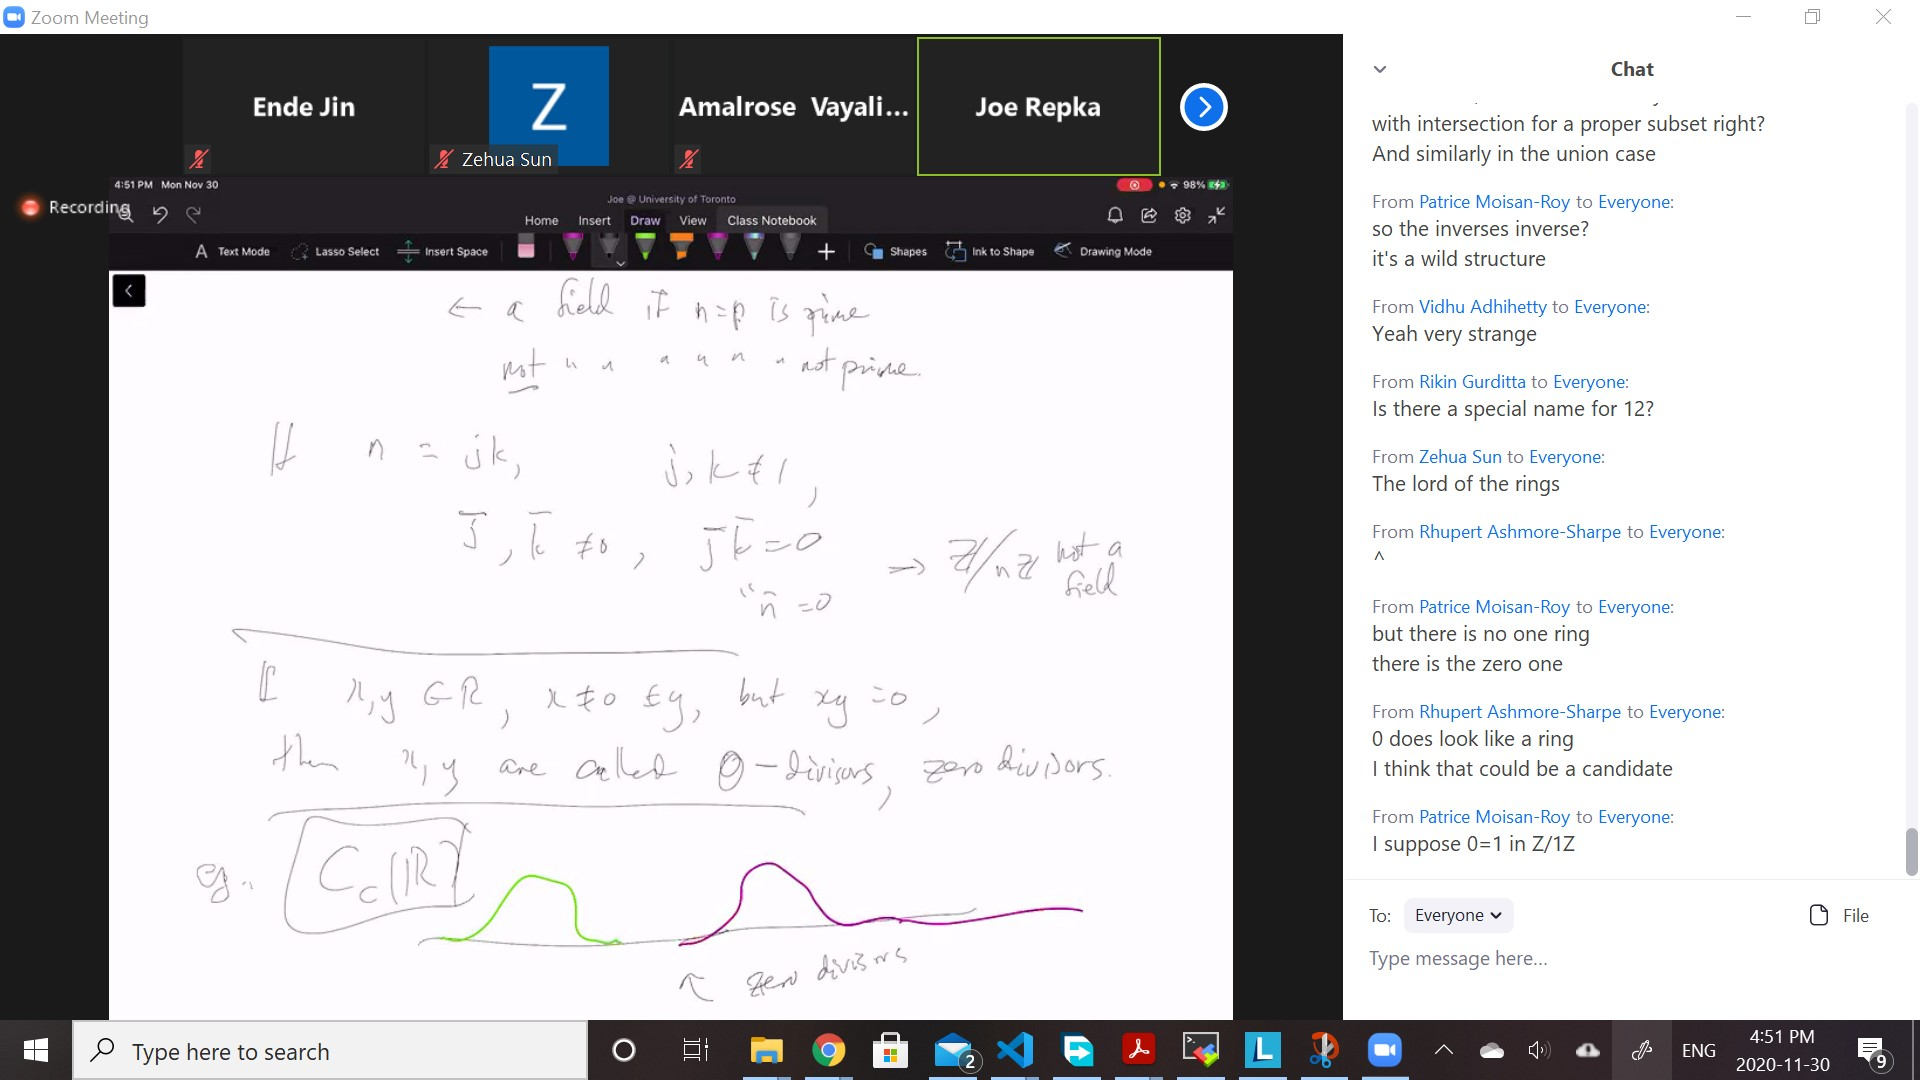 Zoom Meeting
Ende Jin
Z
Zehua Sun
Amalrose Vayali...
Joe Repka
Recording
4:51 PM Mon Nov 30
98%
Joe @ University of Toronto
Home Insert Draw View Class Notebook
A Text Mode Lasso Select Insert Space Shapes Ink to Shape Drawing Mode
← a field if n=p is prime
not " " " " " " not prime.
If n = jk, j, k ≠ 1,
j̄, k̄ ≠ 0, j̄k̄ = 0 → ℤ/nℤ not a field
" n̄ = 0
If x,y ∈ R, x ≠ 0 ≠ y, but xy = 0,
then x, y are called 0-divisors, zero divisors.
eg. C_c(ℝ)
↖ zero divisors
Chat
with intersection for a proper subset right?
And similarly in the union case
From Patrice Moisan-Roy to Everyone:
so the inverses inverse?
it's a wild structure
From Vidhu Adhihetty to Everyone:
Yeah very strange
From Rikin Gurditta to Everyone:
Is there a special name for 12?
From Zehua Sun to Everyone:
The lord of the rings
From Rhupert Ashmore-Sharpe to Everyone:
^
From Patrice Moisan-Roy to Everyone:
but there is no one ring
there is the zero one
From Rhupert Ashmore-Sharpe to Everyone:
0 does look like a ring
I think that could be a candidate
From Patrice Moisan-Roy to Everyone:
I suppose 0=1 in Z/1Z
To: Everyone File
Type message here...
Type here to search
2
L
ENG
4:51 PM
2020-11-30
9